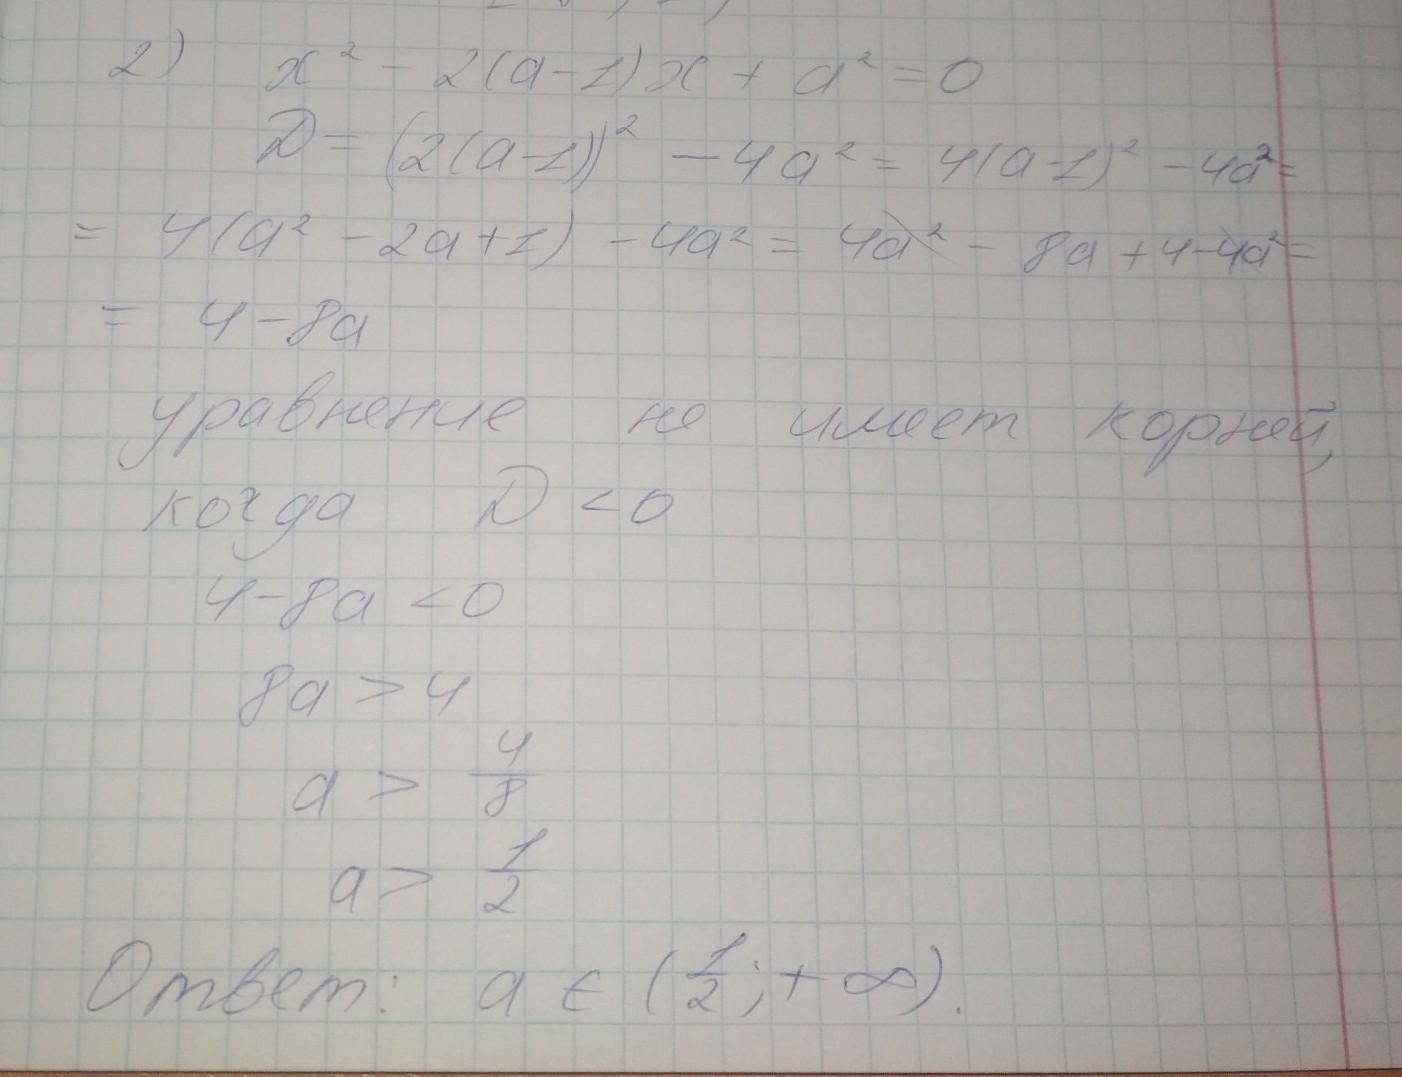 2) x² - 2(a-1)x + a² = 0
D = (2(a-1))² - 4a² = 4(a-1)² - 4a² =
= 4(a² - 2a + 1) - 4a² = 4a² - 8a + 4 - 4a² =
= 4 - 8a
уравнение не имеет корней,
когда D < 0
4 - 8a < 0
8a > 4
a > 4/8
a > 1/2
Ответ: a ∈ (1/2; + ∞).